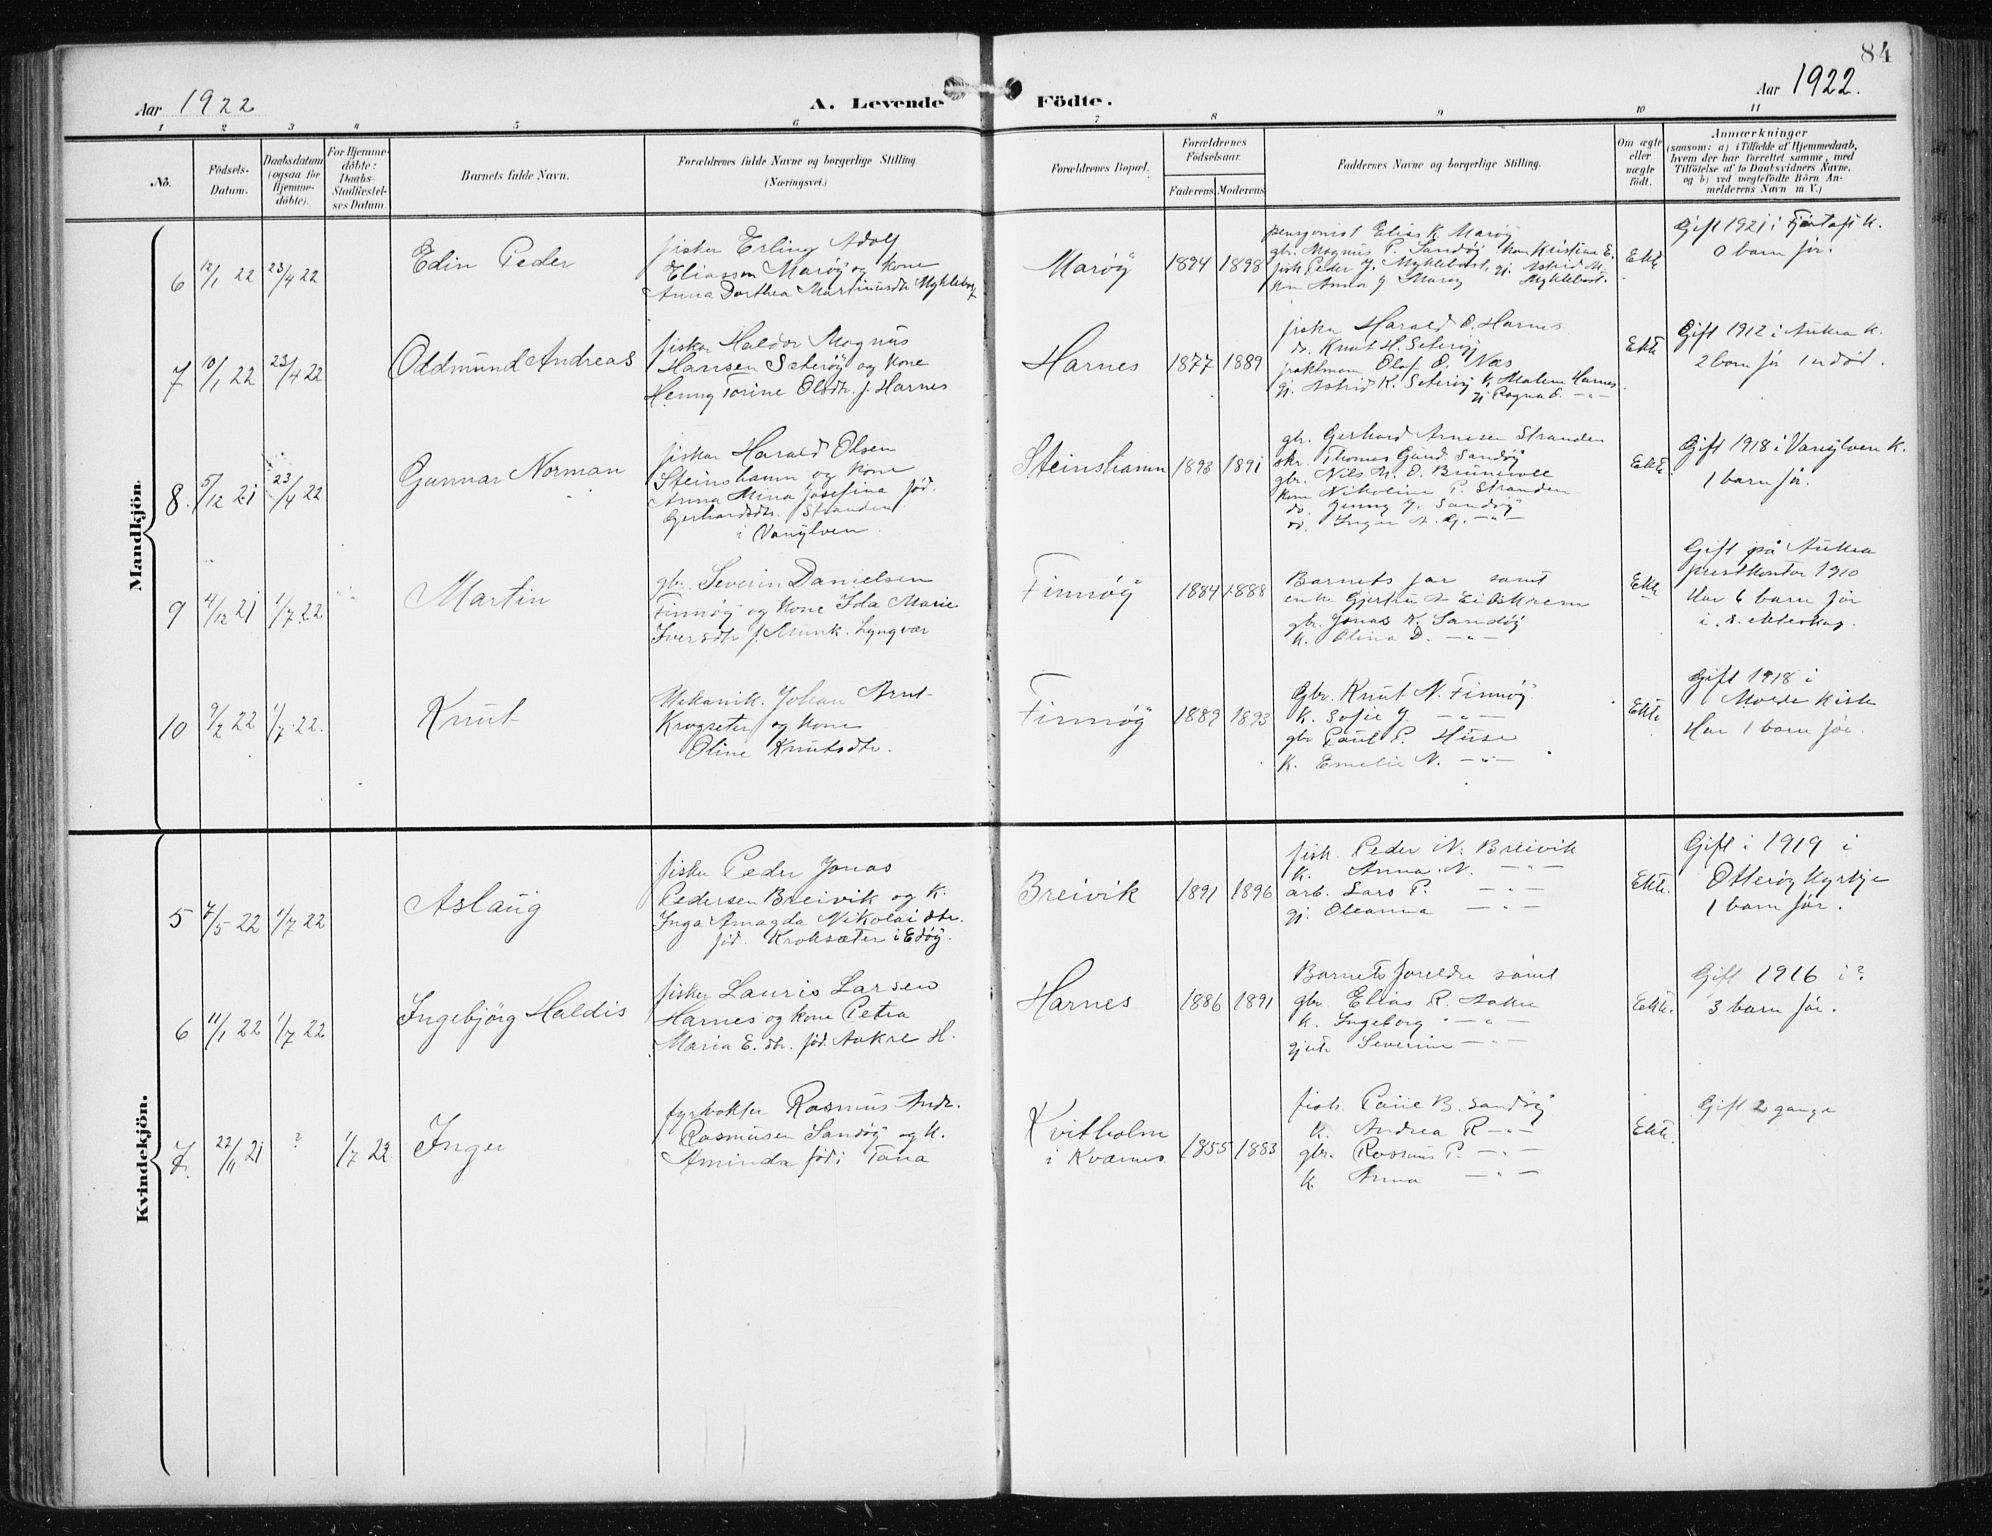 84
Aar 1922
A. Levende Födte.
Aar 1922.
1 2 3 4 5 6 7 8 9 10 11
No.
Födsels-
Datum.
Daabsdatum
(ogsaa for
Hjemme-
döbte).
For Hjemme-
döbte:
Daabs-
Stadfæstel-
ses Datum.
Barnets fulde Navn.
Forældrenes fulde Navne og borgerlige Stilling.
(Næringsvei.)
Forældrenes Bopæl.
Forældrenes
Födselsaar.
Faderens. Moderens.
Faddernes Navne og borgerlige Stilling.
Om ægte
eller
uægte
födt.
Anmærkninger
(saasom: a) i Tilfælde af Hjemmedaab,
hvem der har forrettet samme, med
Tilföielse af to Daabsvidners Navne,
og b) ved uægtefödte Börn An-
melderens Navn m. V.)
Mandkjön.
6 12/1 22 23/4 22
Edin Peder
fisker Erling Adolf
Eliassen Maröy og kone
Anna Dorthea Martinusdtr. Myklebost
Maröy
1894 1898
pensjonist Elias K. Maröy
gbr. Magnus P. Sandöy kone Kristine E.
fisk Peder J. Myklebost, gj. Astrid M.
kone Anna J Maröy Myklebost.
Ekte
Gift 1921 i Fjørtoft K.
0 barn før.
7 10/1 22 23/4 22
Oddmund Andreas
fisker Haldor Magnus
Hansen Sæteröy og kone
Henny Torine Olsdtr. f. Harnes
Harnes
1877 1889
fisker Harald O. Harnes
do. Knut H. Seteröy
fraktmann Olaf O. Næs
gj. Astrid K. Seteröy K. Malene Harnes
gj Ragna O. — " —
Ekte
Gift 1912 i Aukra K.
2 barn før 1 er død.
8. 5/12 21 23/4 22
Gunnar Norman
fisker Harald Olsen
Steinshamn og kone
Anna Mina Josefina fød.
Gerhardsdtr. Stranden
i Vanylven.
Steinshamn
1893 1891
gbr. Gerhard Arnesen Stranden
skr. Thomas Gund. Sandöy
gbr. Nils M. O. Brunvoll
kone Nikoline P. Stranden
do. Jenny J. Sandöy
do. Inger A. G. — " —
Ekte
Gift 1918 i Vanylven K.
1 barn før.
9 4/12 21 1/7 22
Martin
gbr. Severin Danielsen
Finnöy og kone Ida Marie
Iversdtr f. Munk. Lyngvær
Finnöy
1884 1888
Barnets far samt
enke Gjertru A Eidskrem
gbr. Jonas K. Sandöy
K. Olina D. — " —
Ekte
Gift på Aukra
prestkontor 1910
Har 6 barn før
i s. ekteskap.
10 9/2 22 1/7 22.
Knut
Mekanik. Johan Arnt
Krogseter og kone
Oline Knutsdtr.
Finnöy
1889 1893
Gbr. Knut N. Finnöy
K. Sofie J. — " —
gbr Paul P. Huse
K. Emelie N. — " —
Ekte
Gift 1918 i
Molde Kirke
Har 1 barn før.
Kvindekjön.
5 7/5 22 1/7 22
Aslaug
fisker Peder Jonas
Pedersen Breivik og K.
Inga Amagda Nikolai dtr.
fød. Kroksæter i Edöy.
Breivik
1891 1896
fisk. Peder N. Breivik
K. Anna N. — " —
arb. Lars P. — " —
gj. Oleanna — " —
Ekte.
Gift i 1919 i
Otteröy Kyrkje
1 barn før.
6 11/1 22 1/7 22
Ingebjörg Haldis
fisker Lauris Larsen
Harnes og kone Petra
Maria E. dtr. fød. Aukre H.
Harnes
1886 1891
Barnets foreldre samt
gbr. Elias R. Aukra
K. Ingeborg — " —
gjente Severine — " —
Ekte.
Gift 1916 i ?
3 barn før.
7. 22/11 21 ? 1/7 22
Inger
fyrvokter Rasmus Andr.
Rasmusen Sandöy og K.
Aminda fød i Tana
Kvitholm
i Kvernes
1855 1883
fisk. Paul B. Sandöy
K. Andrea R — " —
gbr. Rasmus P. — " —
K. Anna — " —
Ekte.
Gift 2 gange